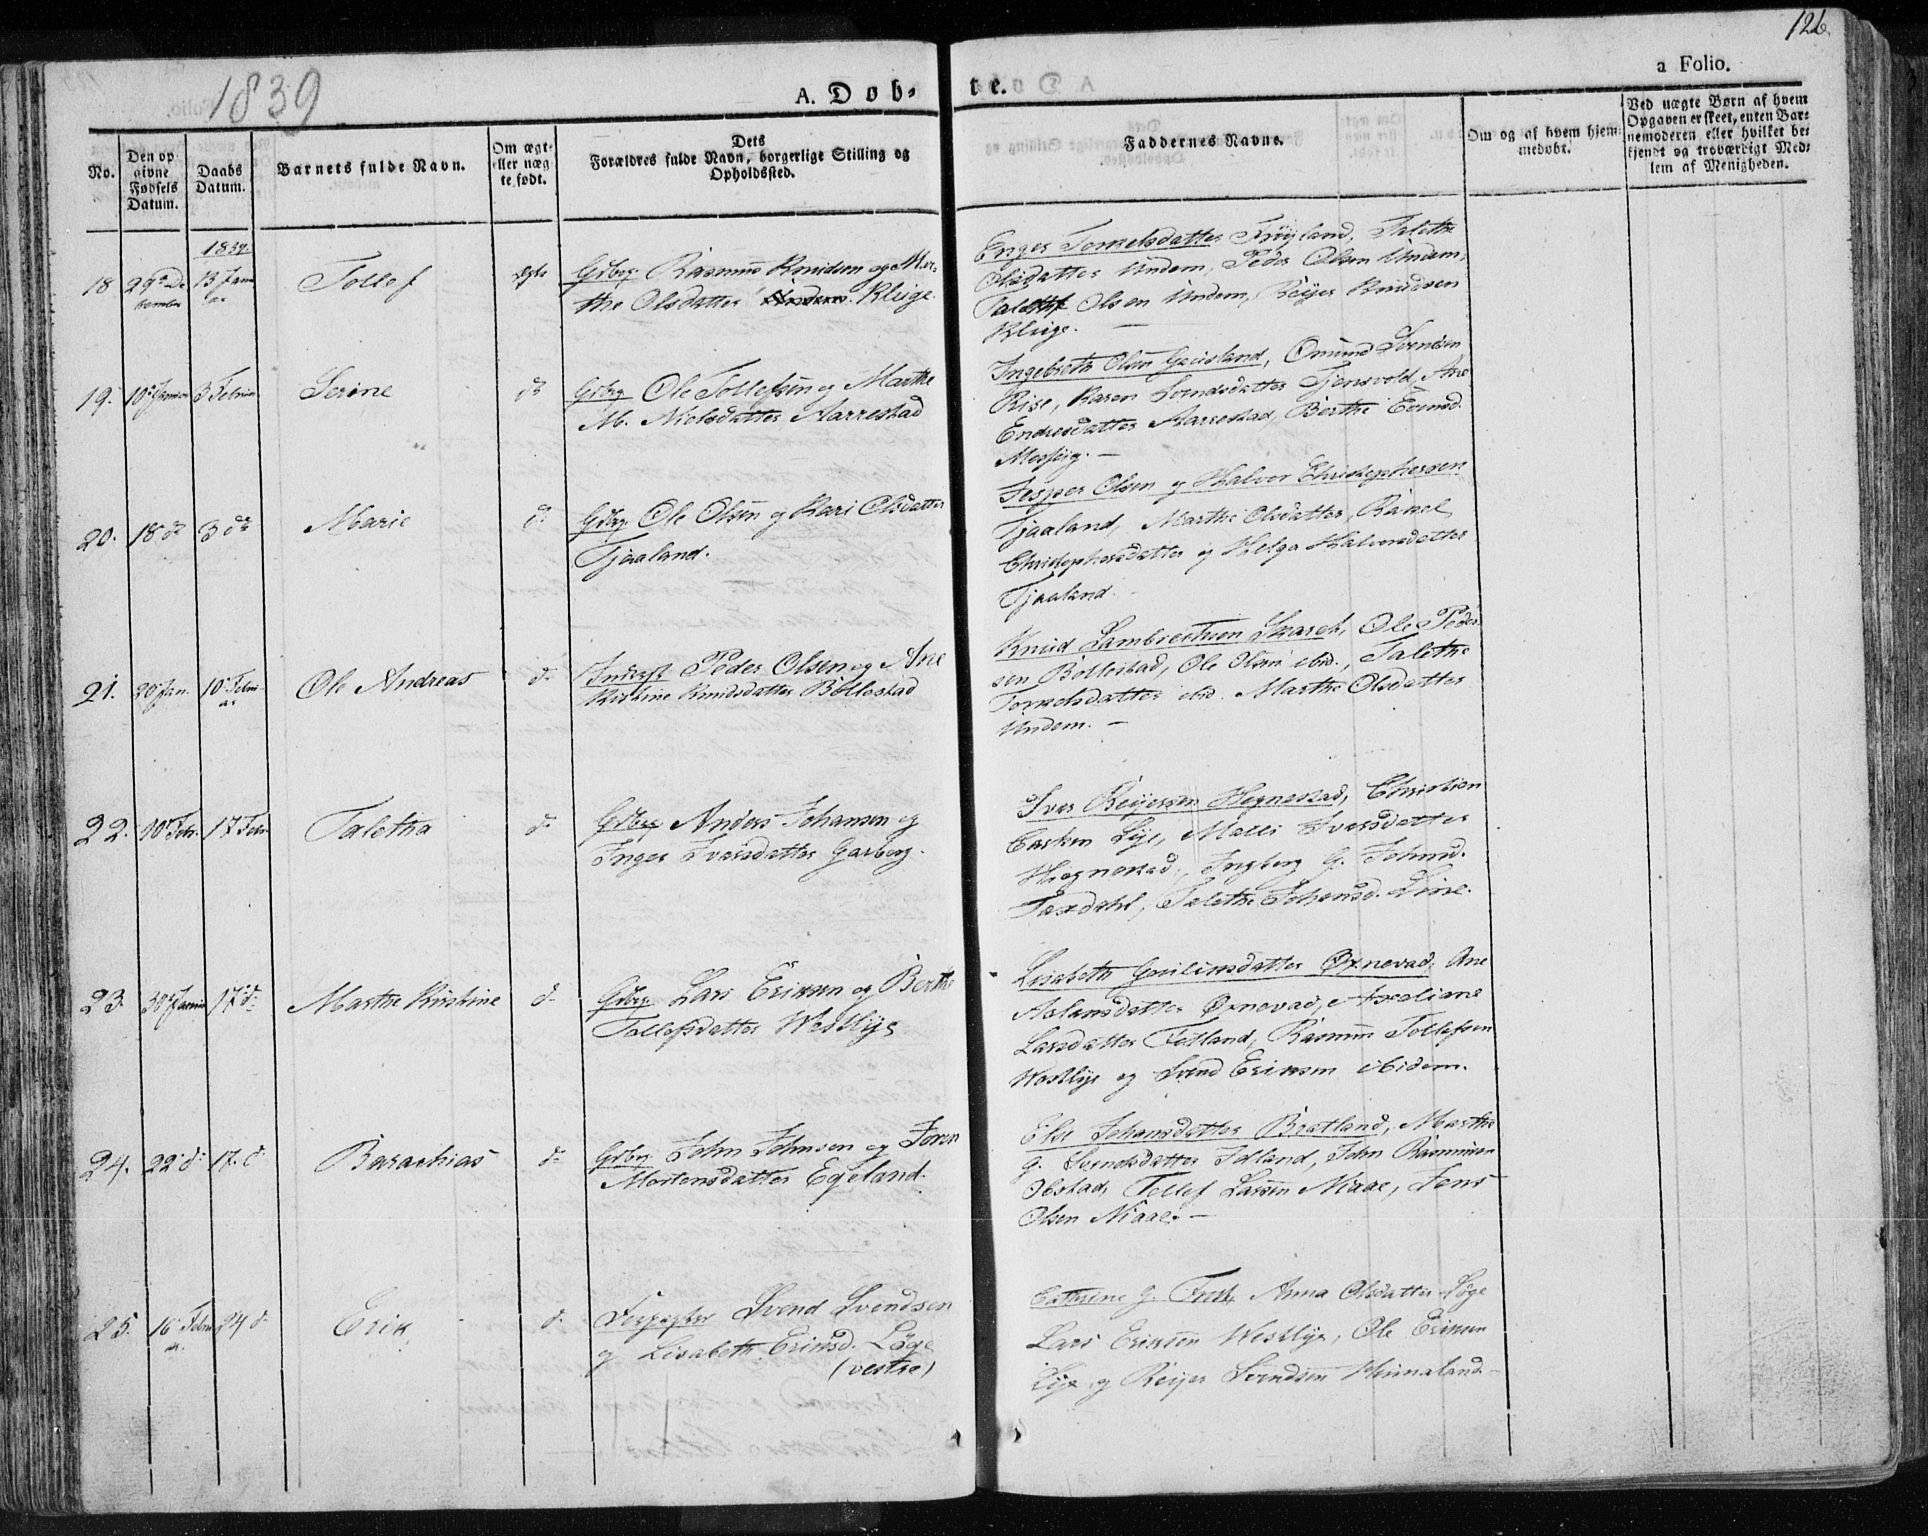 126
1839
A. Døb-
te.
a Folio.
No.
Den op
givne
Fødsels
Datum.
Daabs
Datum.
Barnets fulde Navn.
Om ægt-
eller næg-
te født.
Dets
Forældres fulde Navn, borgerlige Stilling og
Opholdssted.
Faddernes Navne.
Om og af hvem hjem-
medøbt.
Ved uægte Børn af hvem
Opgaven er skeet, enten Bar-
nemoderen eller hvilket be-
kjendt og troværdigt Med-
lem af Menigheden.
1839.
18
13 Janu
ar
Tollef
ægte
Gdbrg. Rasmus Knudsen og Mar-
the Olsdatter Kleige.
Enger Torkelsdatter Frøyland, Talethe
Olsdatter Undem, Peder Olsen Undem,
Olsen Undem, Reijer Knudsen
Kleige.
19. 10de Januar 3 Februar
Serine
do
Gdbrg Ole Tollefsen og Marthe
M. Nielsdatter Aarrestad
Ingebreth Olsen Gausland, Omund Svendsen
Rise, Karen Svendsdatter Tjensvold, Ane
Endresdatter Aarrestad, Berthe
20. 18 do 3 do
Marie
do
Gdbrg Ole Olsen og Kari Olsdatter
Tjaaland.
Jesper Olsen og Halvor Christophersen
Tjaaland, Marthe Olsdatter, Rakel
Christophersdatter og Helga Halvorsdatter
Tjaaland.
21. 30 Jan. 10 Febru-
ar
Ole Andreas
do
Inderst Peder Olsen og Ane
Kirstine Knudsdatter Bollestad
Knud Lambrechtsen Skaret, Ole Peder-
sen Bollestad, Ole Olsen ibid., Talethe
Torkelsdatter ibid. Marthe Olsdatter
Undem.
22. 10 Feb. 17 Febr
Taletha
do
Gdbrg Anders Johansen og
Inger Ivarsdatter Garborg.
Ivar Reijersen Hognestad, Christian
Carsten Lye, Malli Ivarsdatter
Hognestad, Ingborg G. Johnsd.
Taxdahl, Talethe Johansd. Line.
23. 30 Januar 17 do
Marthe Kirstine
do
Gdbrg. Lars Eriksen og Berthe
Tollefsdatter Westlye
Lisabeth Qvilinsdatter Øxnevad, Ane
Aslansdatter Øxnevad, Axeliane
Larsdatter Fotland, Rasmus Tollefsen
Westlye og Svend Eriksen ibidem.
24. 22 do 17. do
Barachias
do
Gdbrg. John Johnsen og Joren
Mortensdatter Egeland.
Else Johansdatter Bratland, Marthe
G. Svendsdatter Fotland, John Rasmussen
Obstad, Tollef Larsen Niaae, Jens
Olsen Niaae.
25. 16 Febru-
ar
24 do
Erik
do
Svend Svendsen
og Lisabeth Eriksd. Løge
(vestre)
Cathrine G. Anna Olsdatter Løge
Lars Eriksen Westlye, Ole Eriksen
Lye og Reijer Svendsen Hinnaland.